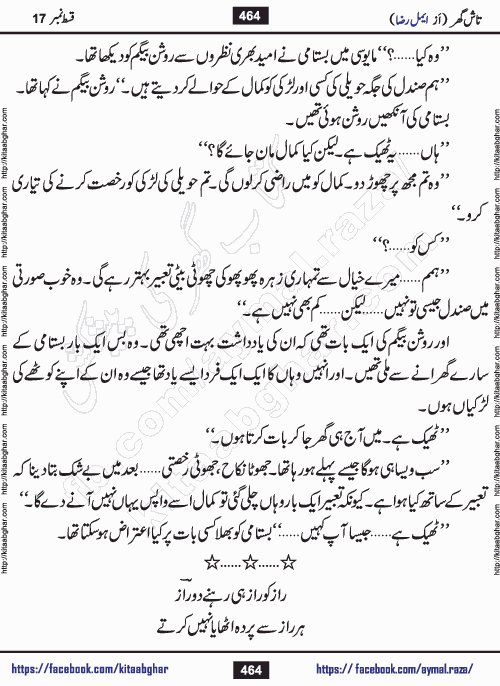 تاش گھر (از ایمل رضا)
464
قسط نمبر 17
”وہ کیا......؟“ مایوسی میں بسامی نے امید بھری نظروں سے روشن بیگم کو دیکھا تھا۔
”ہم صندل کی جگہ حویلی کی کسی اور لڑکی کو کمال کے حوالے کر دیتے ہیں۔“ روشن بیگم نے کہا تھا۔
بسامی کی آنکھیں روشن ہوئی تھیں۔
”ہاں...... یہ ٹھیک ہے۔ لیکن کیا کمال مان جائے گا؟“
”وہ تم مجھ پر چھوڑ دو۔ کمال کو میں راضی کر لوں گی۔ تم حویلی کی لڑکی کو رخصت کرنے کی تیاری
کرو۔“
”کس کو......؟“
”ہمم...... میرے خیال سے تمہاری زہرہ پھوپھو کی چھوٹی بیٹی تعبیر بہتر رہے گی۔ وہ خوب صورتی
میں صندل جیسی تو نہیں...... لیکن...... کم بھی نہیں ہے۔“
اور روشن بیگم کی ایک بات تھی کہ ان کی یادداشت بہت اچھی تھی۔ وہ بس ایک بار بسامی کے
سارے گھرانے سے ملی تھیں۔ اور انہیں وہاں کا ایک ایک فرد ایسے یاد تھا جیسے وہ ان کے اپنے کوٹھے کی
لڑکیاں ہوں۔
”ٹھیک ہے۔ میں آج ہی گھر جا کر بات کرتا ہوں۔“
”سب ویسا ہی ہو گا جیسے پہلے ہو رہا تھا۔ جھوٹا نکاح، جھوٹی رخصتی...... بعد میں بے شک بتا دینا کہ
تعبیر کے ساتھ کیا ہوا ہے۔ کیونکہ تعبیر ایک بار وہاں چلی گئی تو کمال اسے واپس یہاں نہیں آنے دے گا۔“
”ٹھیک ہے...... جیسا آپ کہیں......“ بسامی کو بھلا کسی بات پر کیا اعتراض ہو سکتا تھا۔
☆......☆......☆
راز کو راز ہی رہنے دو راز
ہر راز سے پردہ اٹھایا نہیں کرتے
https://facebook.com/kitaabghar
464
https://facebook.com/aymal.raza/
http://kitaabghar.com